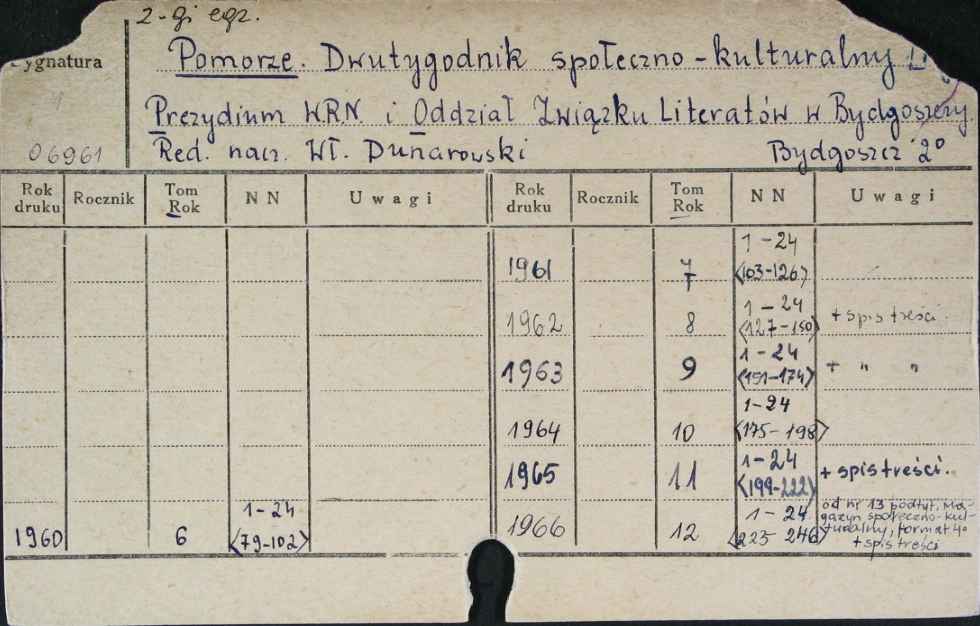 2-gi egz.
Sygnatura
Pomorze. Dwutygodnik społeczno-kulturalny
Prezydium WRN i Oddział Związku Literatów w Bydgoszczy.
06961
Red. nacz. Wł. Dunarowski Bydgoszcz 2°
Rok druku Rocznik Tom Rok NN Uwagi Rok druku Rocznik Tom Rok NN Uwagi
1961 7 1-24 <103-126>
1962 8 1-24 <127-150> + spis treści.
1963 9 1-24 <151-174> + " "
1964 10 1-24 <175-198>
1965 11 1-24 <199-222> + spis treści.
1960 6 1-24 <79-102>
1966 12 1-24 <223 246> od nr 13 podtyt. Ma-
gazyn społeczno-kul-
turalny, format 4°
+ spis treści